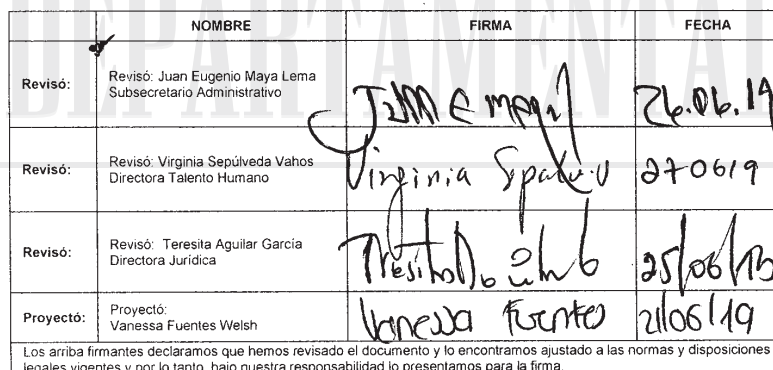 DEPARTAMENTAL
NOMBRE FIRMA FECHA
Revisó: Revisó: Juan Eugenio Maya Lema
Subsecretario Administrativo
26.06.19
Revisó: Revisó: Virginia Sepúlveda Vahos
Directora Talento Humano
Virginia 270619
Revisó: Revisó: Teresita Aguilar García
Directora Jurídica
25/06/
Proyectó: Proyectó:
Vanessa Fuentes Welsh
Vanessa Fuentes 21/06/19
Los arriba firmantes declaramos que hemos revisado el documento y lo encontramos ajustado a las normas y disposiciones
legales vigentes y por lo tanto, bajo nuestra responsabilidad lo presentamos para la firma.